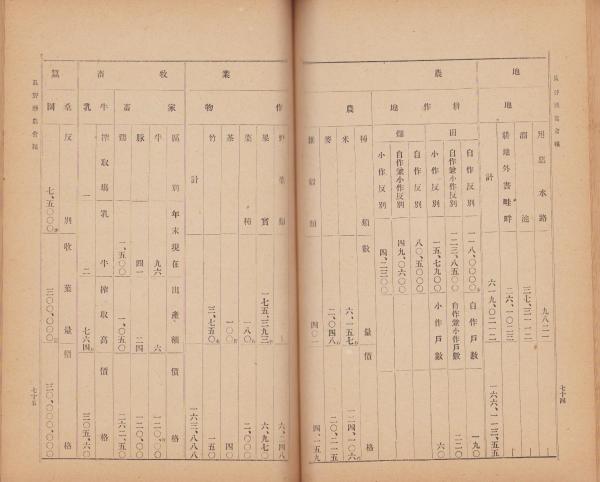 地
地
用惡水路 九八二一
溜池 三七、三一二一
耕地外畫畦畔 二六、一〇二三
計
農
耕作地
田
自作反別 一一八、〇〇〇 自作戶數 一九〇
自作兼小作反別 一二三、八五〇〇 自作兼小作戶數 二二〇
小作反別 一五、七九〇〇 小作戶數 六〇
畑
自作反別 八〇、五〇〇〇
自作兼小作反別 四九、〇六〇〇
小作反別 四二、二三〇〇
農
種類 數量 價格
米 六、一五七
麥
雜穀類 四〇二 四、一五九
七十四
業
作物
野菜類 六、二四八
果實 一七五、三九三 六、九七〇
葉種 一八〇 二、〇〇〇
茶 一〇〇 四〇
竹 三、七五〇 一五〇
計 一六三、八八八
牧畜
家畜
區別 年末現在 出產額 價格
牛 九六 六 一二〇、〇〇
豚 四一 二四 一二〇、〇〇
鷄 一、五〇〇 一、〇五〇 二六二、五〇
牛乳
搾取場 乳牛 搾取高 價格
一 二 七六四 三〇五、六〇
桑反別 收葉量 價格
七、五〇〇〇 三〇〇、〇〇〇 三〇、〇〇〇、〇〇〇
七十五